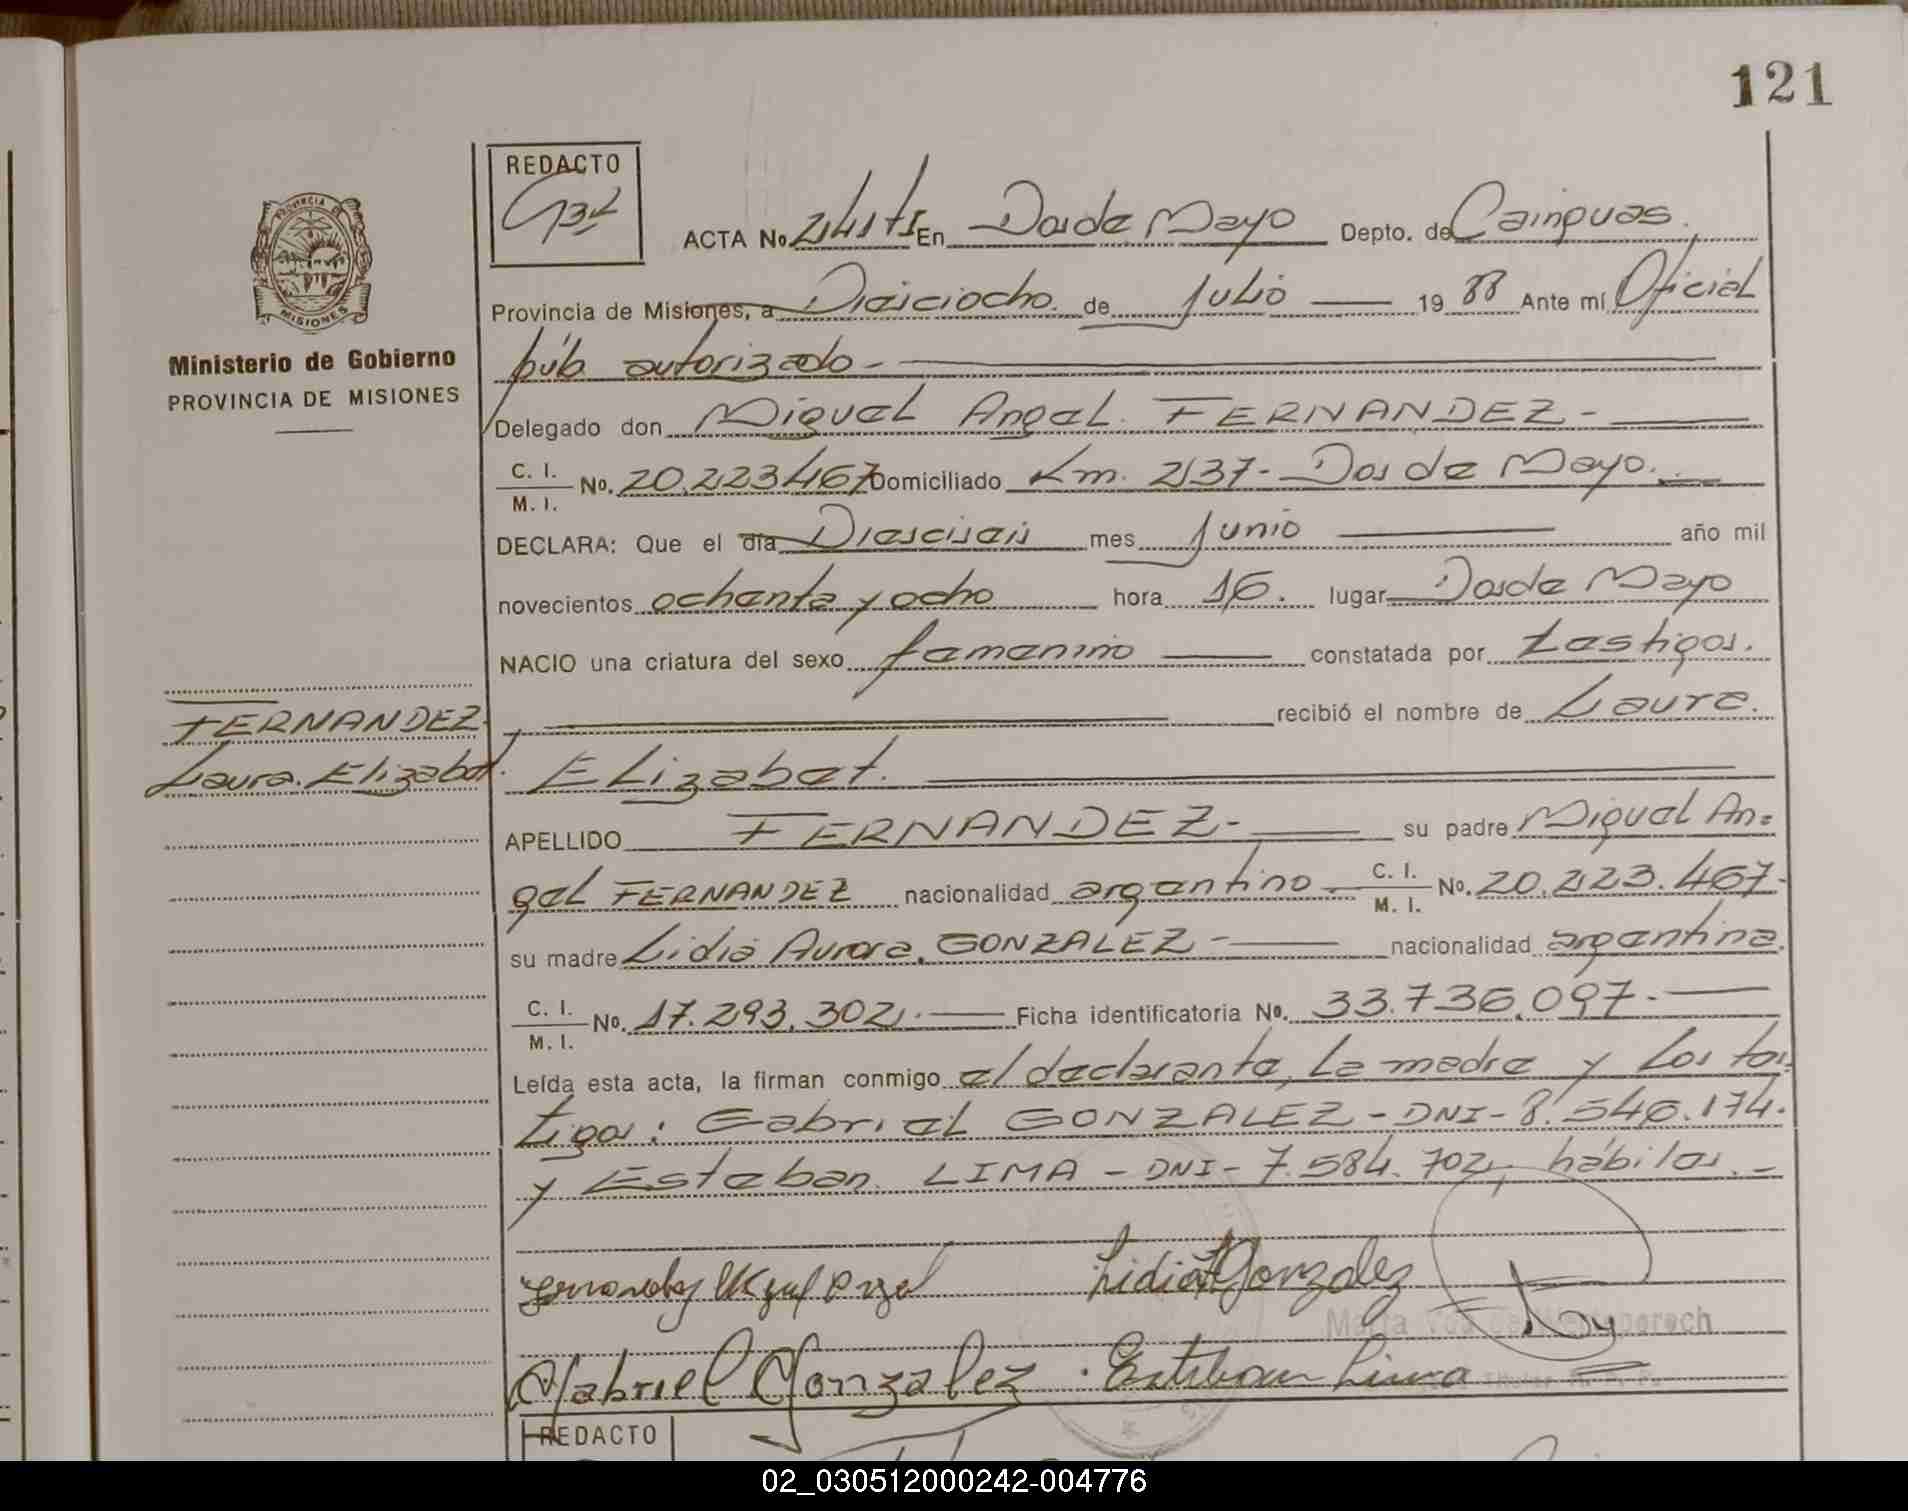 121
REDACTO
ACTA No. 241 tI En Dos de Mayo Depto. de Cainguas.
Provincia de Misiones, a Dieiciocho. de Julio 19 88 Ante mí Oficial
púb. autorizado-
Ministerio de Gobierno
PROVINCIA DE MISIONES
PROVINCIA DE
MISIONES
Delegado don Miguel Angel. FERNANDEZ-
C. I.
M. I. No. 20.223467 Domiciliado Km. 237- Dos de Mayo.
DECLARA: Que el día Diesciseis mes Junio año mil
novecientos ochenta y ocho hora 16. lugar Dos de Mayo
NACIO una criatura del sexo femenino constatada por testigos.
FERNANDEZ. recibió el nombre de Laura.
Laura. Elizabet. Elizabet.
APELLIDO FERNANDEZ- su padre Miguel An=
gel FERNANDEZ nacionalidad argentino- C. I.
M. I. No. 20.223.467-
su madre Lidia Aurora. GONZALEZ- nacionalidad argentina.
C. I.
M. I. No. 17.293.302.- Ficha identificatoria No. 33.736.097.-
Leída esta acta, la firman conmigo el declarante, la madre y los tes=
tigos: Gabriel GONZALEZ-DNI-8.546.174.
y Esteban. LIMA-DNI-7.584.702, hábiles.-
Fernandez Miguel Angel Lidia A Gonzalez
Gabriel Gonzalez. Esteban Lima
REDACTO
02_030512000242-004776